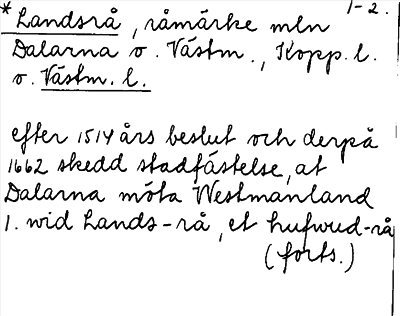 1-2.
* Landsrå, råmärke mln
Dalarna o. Västm., Kopp. l.
o. Västm. l.
efter 1514 års beslut och derpå
1662 skedd stadfästelse, at
Dalarna möta Westmanland
1. wid Lands-rå, et hufwud-rå
(forts.)